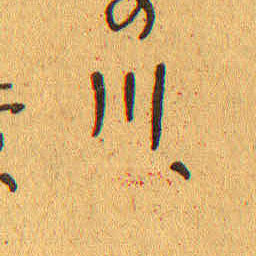 の川、